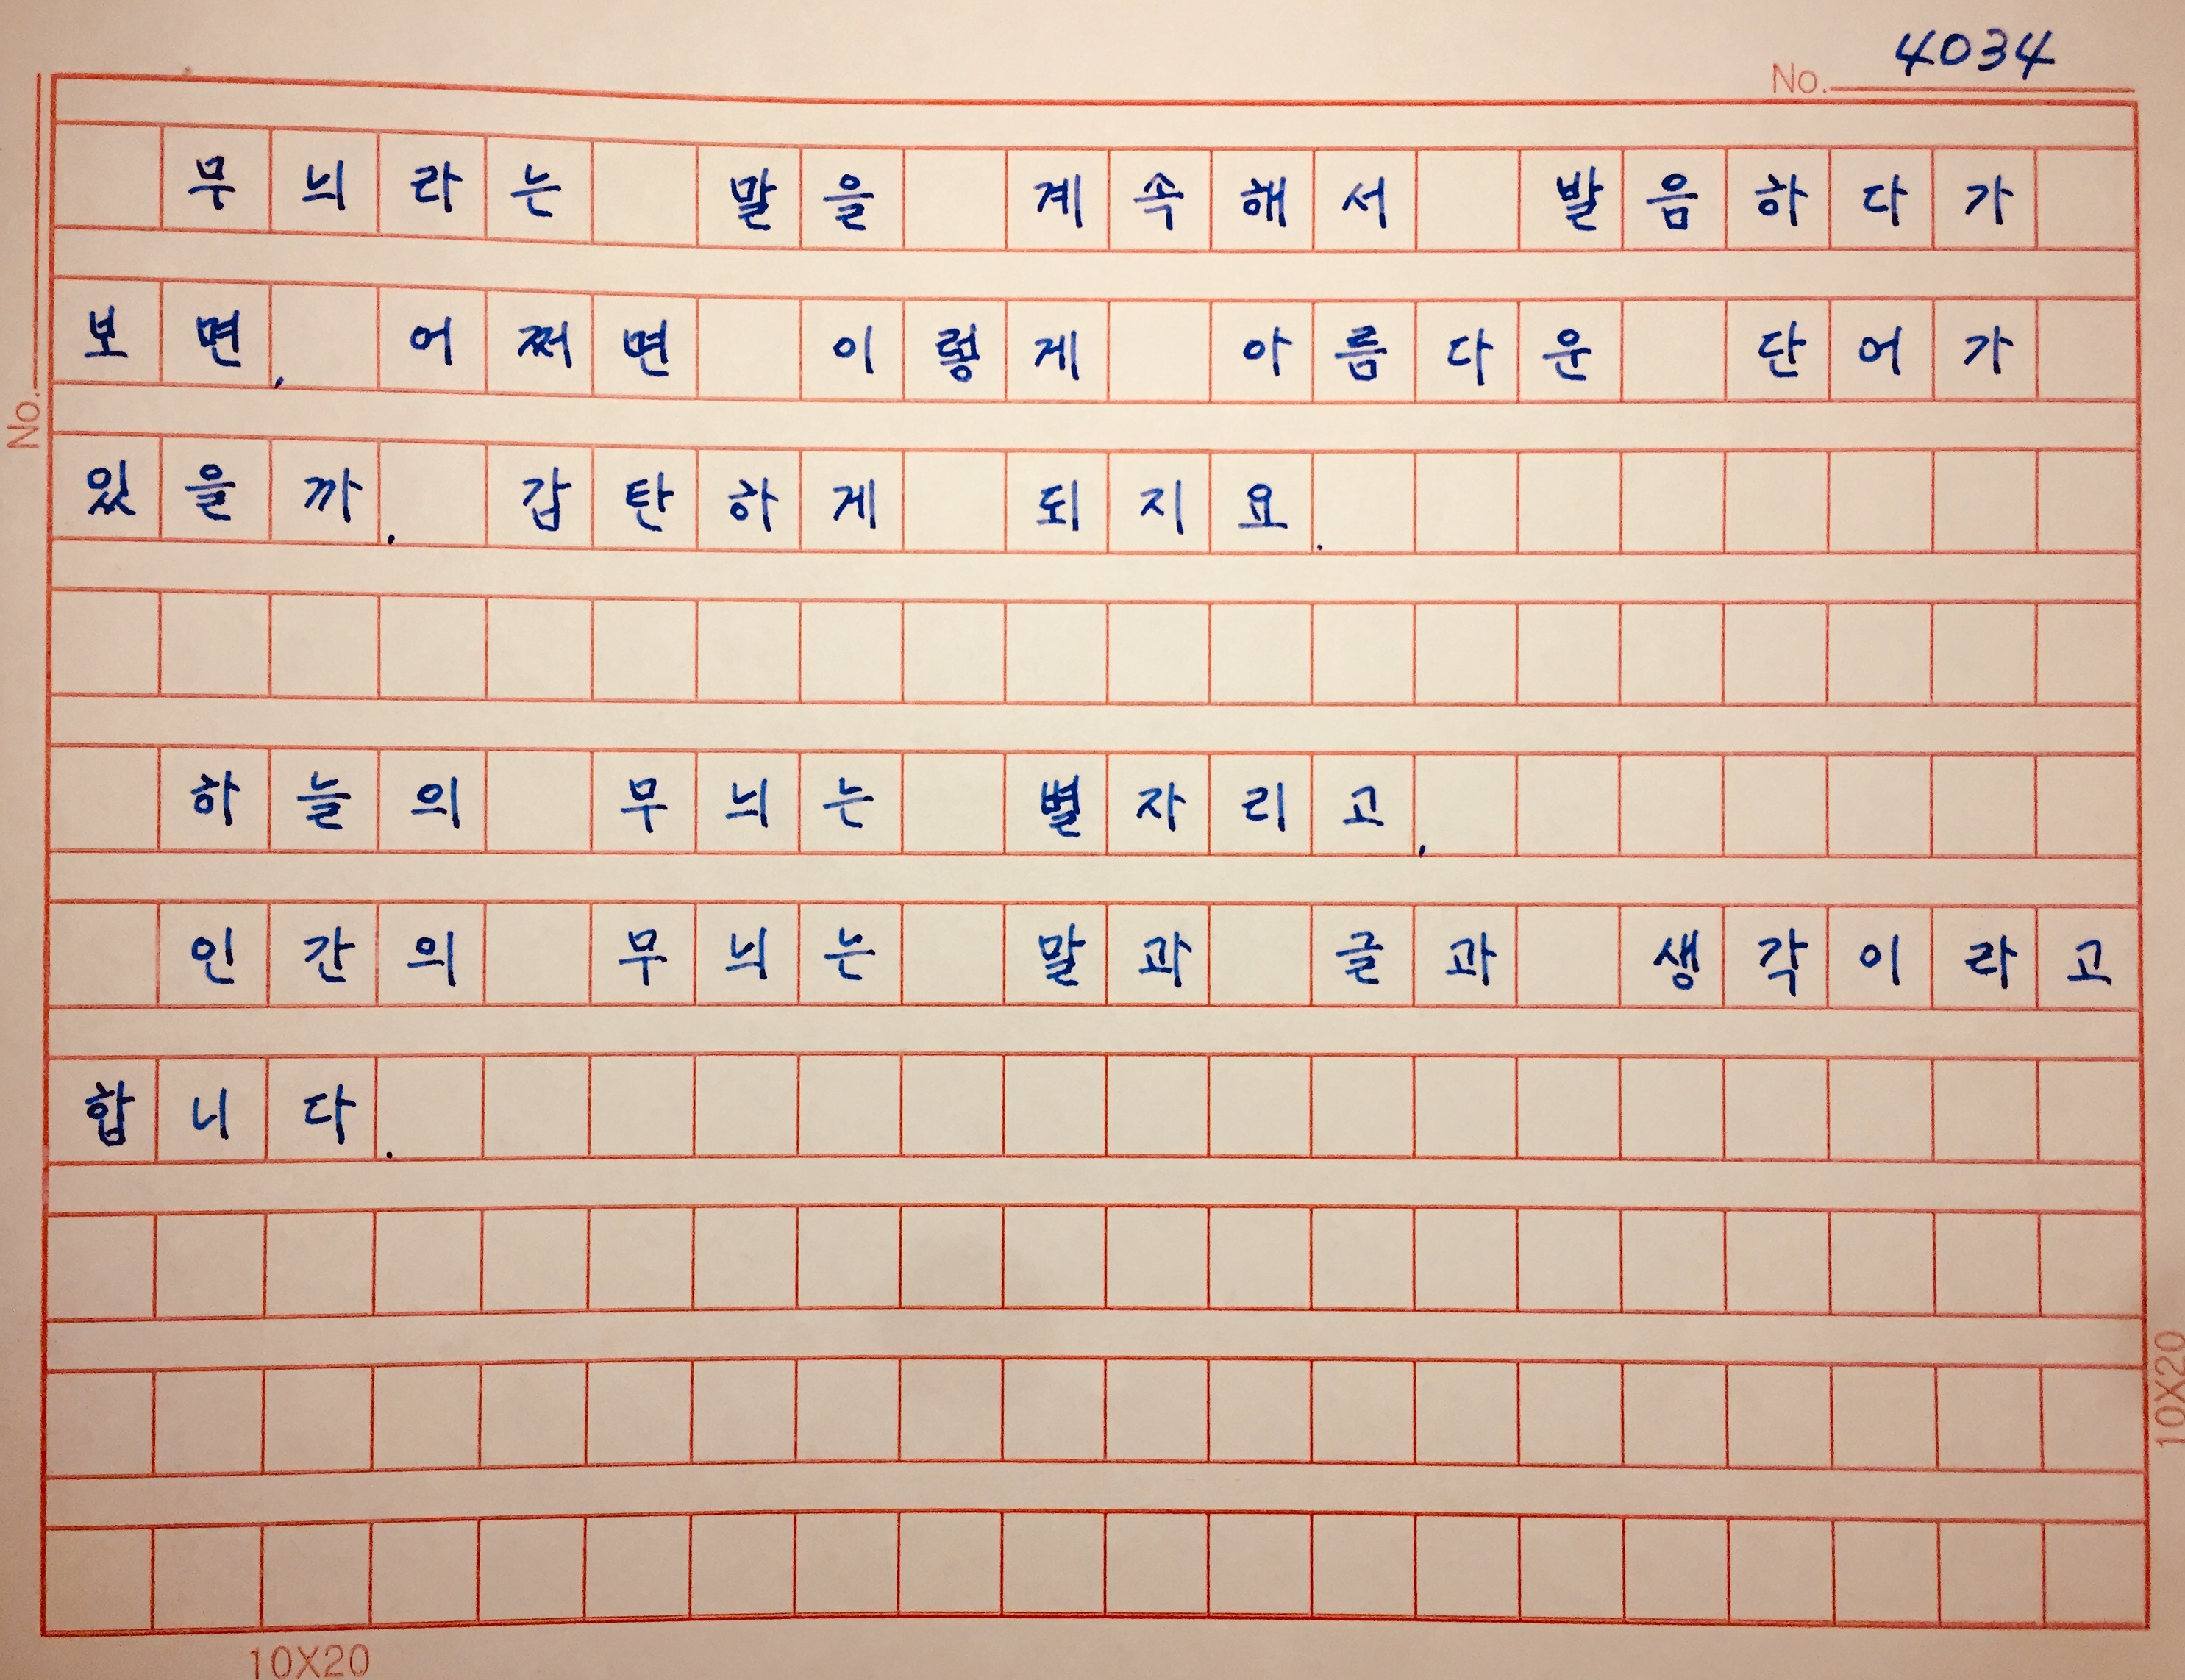 No. 4034
무늬라는 말을 계속해서 발음하다가
보면, 어쩌면 이렇게 아름다운 단어가
있을까. 감탄하게 되지요.
하늘의 무늬는 별자리고,
인간의 무늬는 말과 글과 생각이라고
합니다.
No.
10X20
10X20